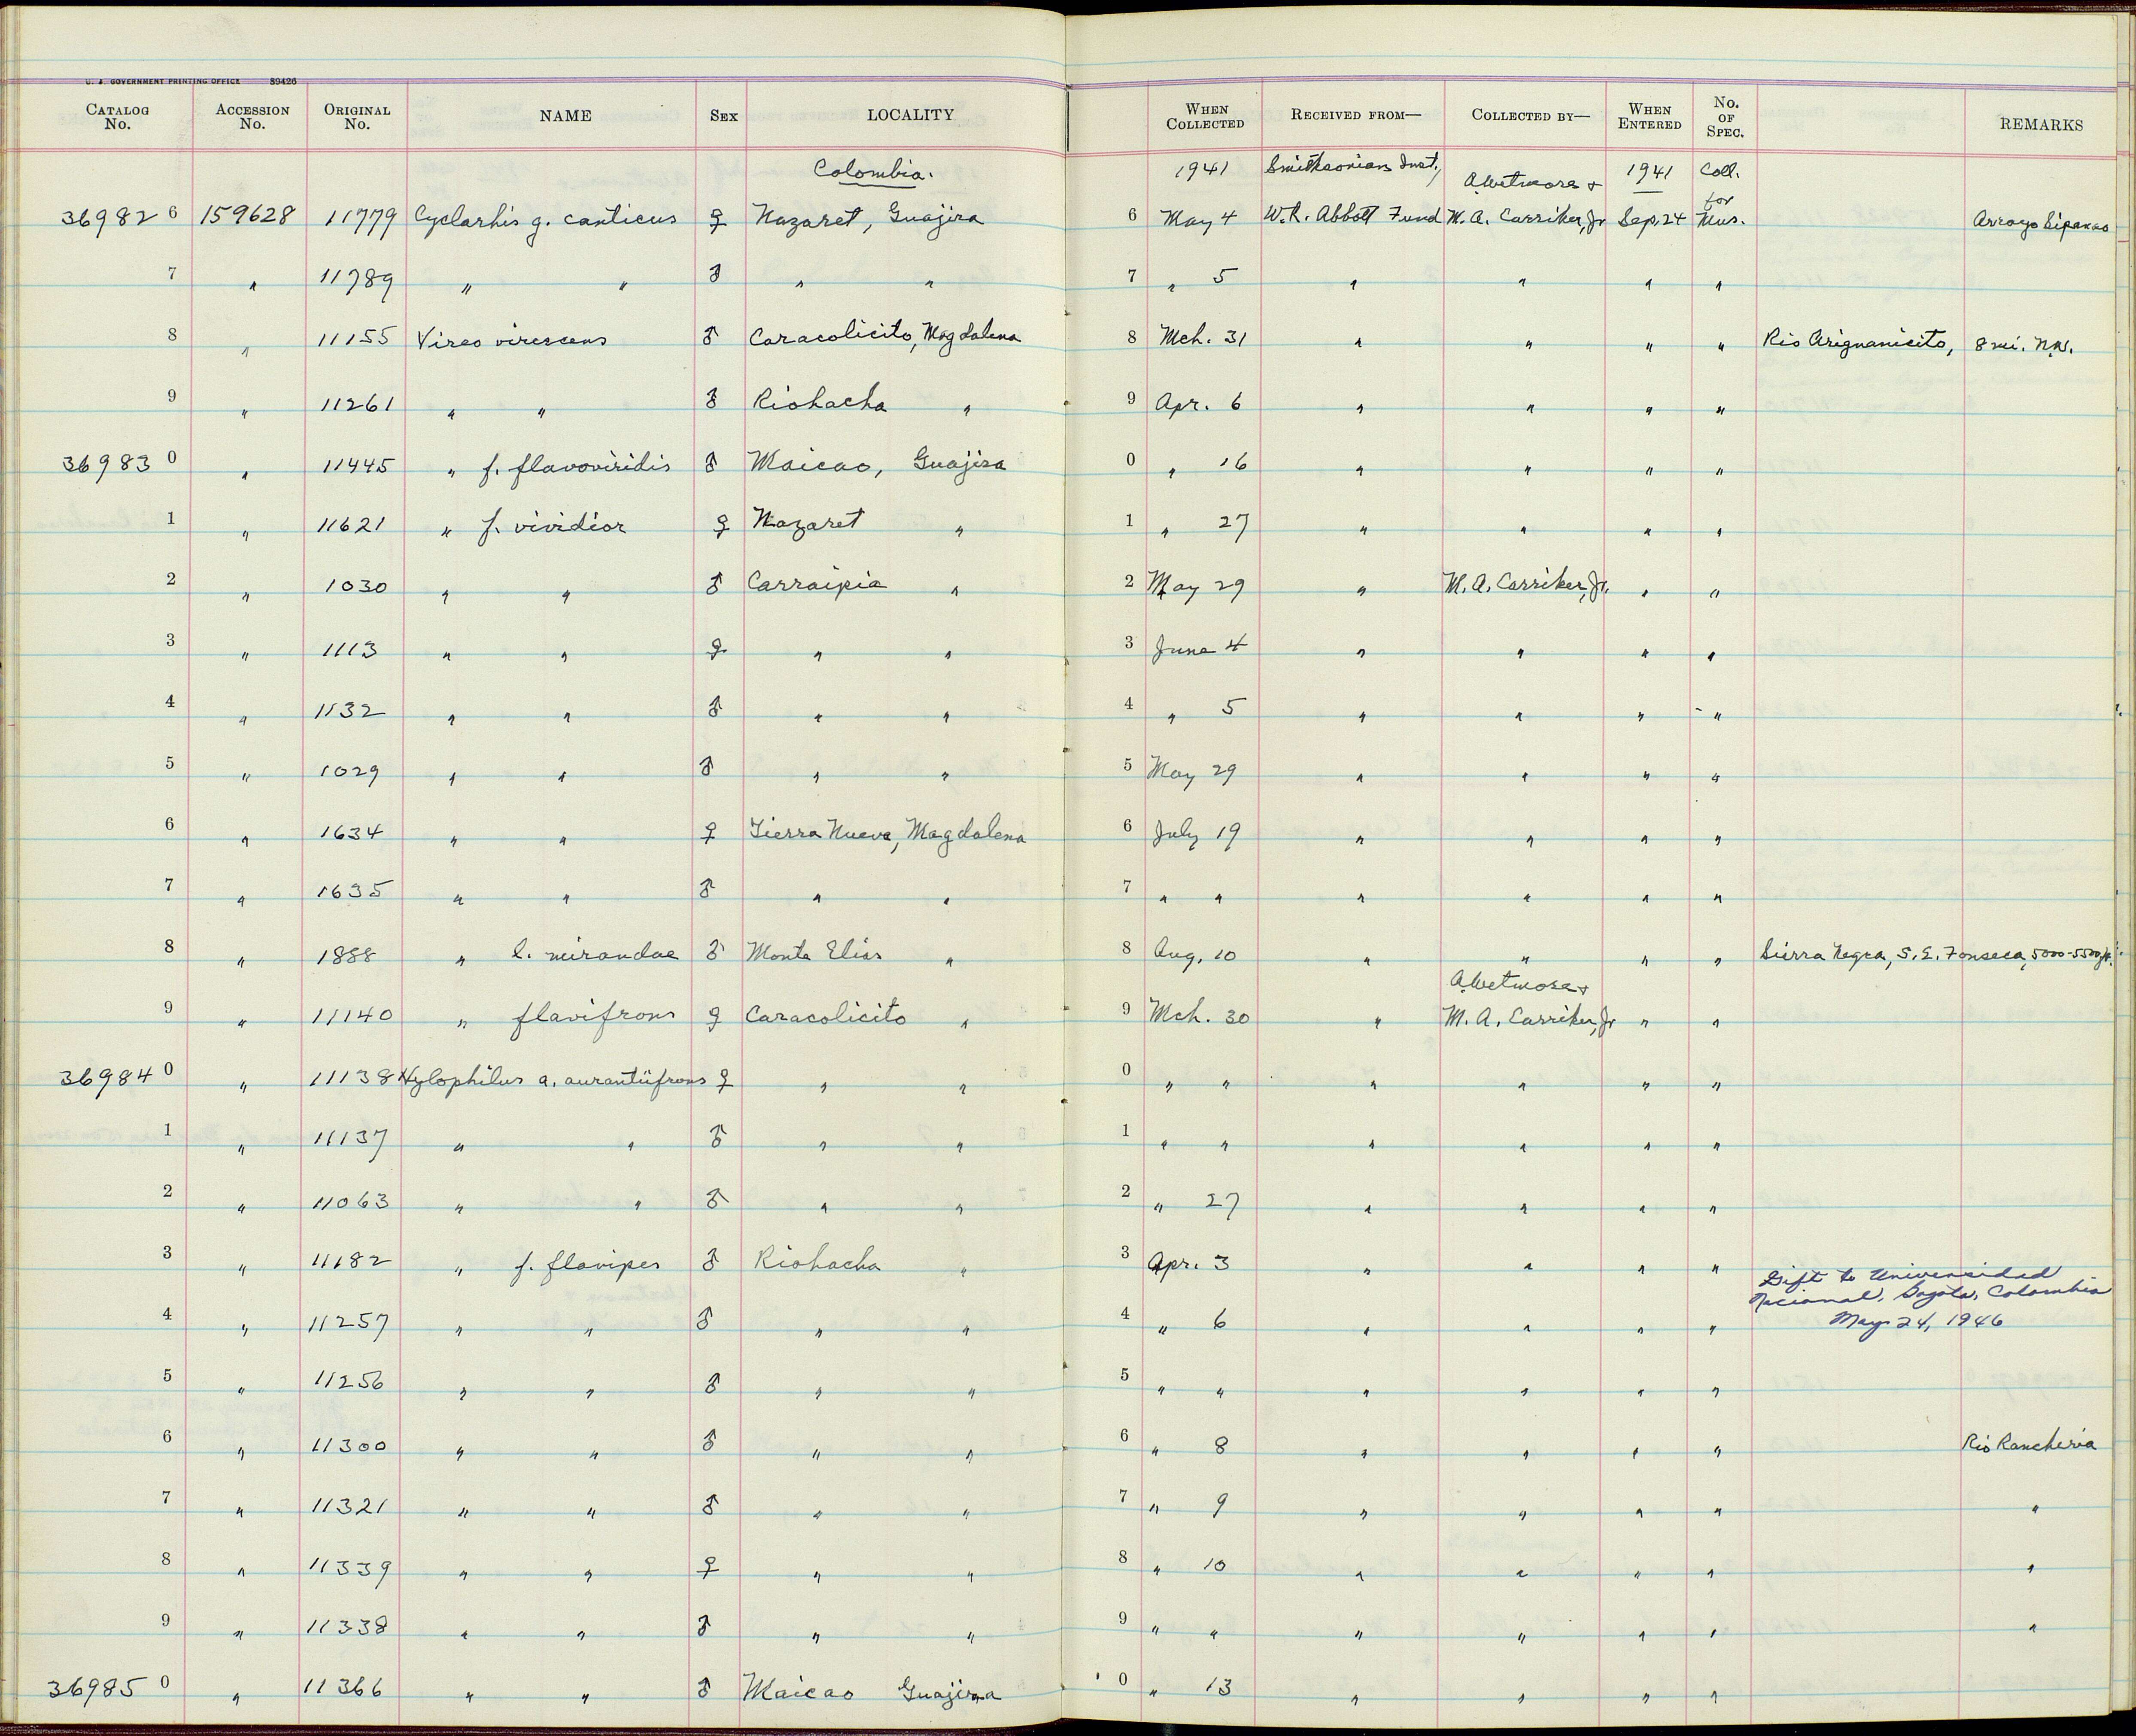 U. S. GOVERNMENT PRINTING OFFICE 89426
CATALOG No. ACCESSION No. ORIGINAL No. NAME SEX LOCALITY WHEN COLLECTED RECEIVED FROM— COLLECTED BY— WHEN ENTERED No. OF SPEC. REMARKS
Colombia. 1941 Smithsonian Inst., A. Wetmore + 1941 Coll. for
36982 6 159628 11779 Cyclarhis g. canticus ♀ Nazaret, Guajira 6 May 4 W. R. Abbott Fund M. A. Carriker, Jr Sep. 24 Mus. Arroyo Sipanao
7 " 11789 " " ♂ " " 7 " 5 " " " "
8 " 11155 Vireo virescens ♂ Caracolicito, Magdalena 8 Mch. 31 " " " " Rio Ariguanicito, 8 mi. N.W.
9 " 11261 " " ♂ Riohacha " 9 Apr. 6 " " " "
36983 0 " 11445 " f. flavoviridis ♂ Maicao, Guajira 0 " 16 " " " "
1 " 11621 " f. vividior ♀ Nazaret " 1 " 27 " " " "
2 " 1030 " " ♂ Carraipia " 2 May 29 " M. A. Carriker, Jr. " "
3 " 1113 " " ♀ " " 3 June 4 " " " "
4 " 1132 " " ♂ " " 4 " 5 " " " "
5 " 1029 " " ♂ " " 5 May 29 " " " "
6 " 1634 " " ♀ Tierra Nueva, Magdalena 6 July 19 " " " "
7 " 1635 " " ♂ " " 7 " " " " " "
8 " 1888 " l. mirandae ♂ Monte Elias " 8 Aug. 10 " " " " Sierra Negra, S. E. Fonseca, 5000-5500 ft.
A. Wetmore +
9 " 11140 " flavifrons ♀ Caracolicito " 9 Mch. 30 " M. A. Carriker, Jr " "
36984 0 " 11138 Hylophilus a. aurantiifrons ♀ " " 0 " " " " " "
1 " 11137 " " ♂ " " 1 " " " " " "
2 " 11063 " " ♂ " " 2 " 27 " " " "
3 " 11182 " f. flavipes ♂ Riohacha " 3 Apr. 3 " " " "
Gift to Universidad
Nacional, Bogota, Colombia
4 " 11257 " " ♂ " " 4 " 6 " " " " May 24, 1946
5 " 11256 " " ♂ " " 5 " " " " " "
6 " 11300 " " ♂ " " 6 " 8 " " " " Rio Rancheria
7 " 11321 " " ♂ " " 7 " 9 " " " " "
8 " 11339 " " ♀ " " 8 " 10 " " " " "
9 " 11338 " " ♂ " " 9 " " " " " " "
36985 0 " 11366 " " ♂ Maicao Guajira 0 " 13 " " " "